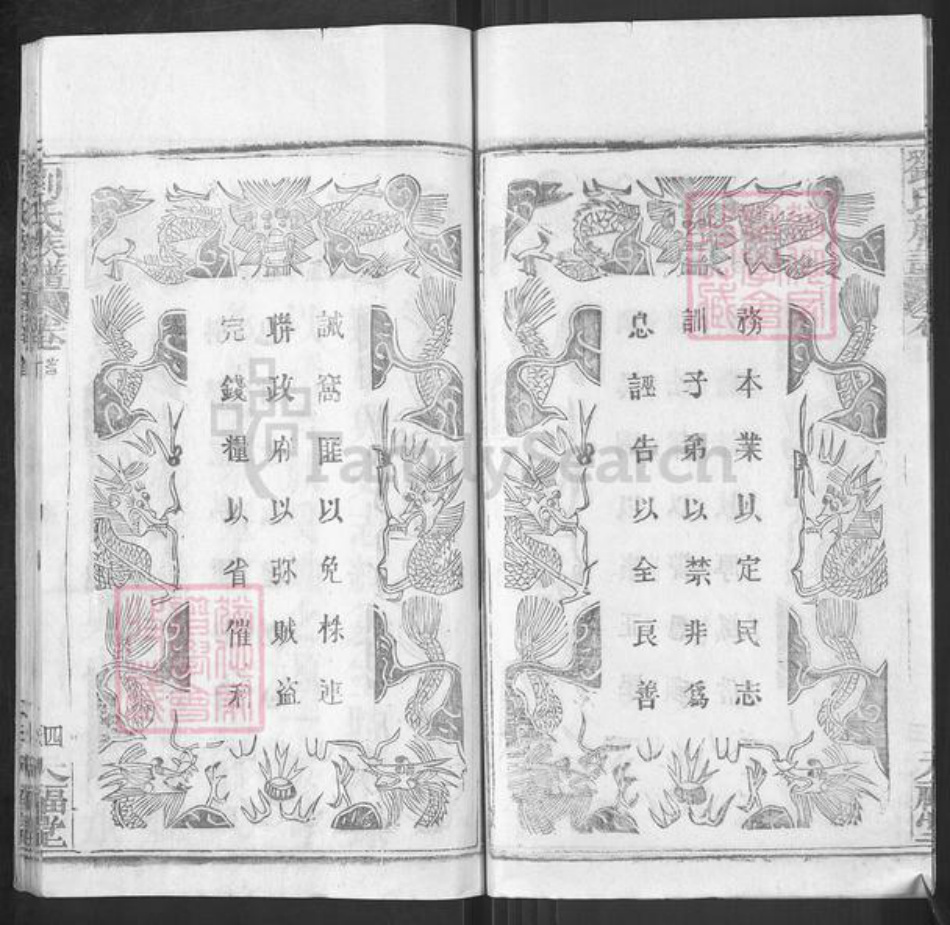 務本業以定民志
訓子弟以禁非為
息誣告以全良善
誡窩匪以免株連
聯政府以弥賊盜
完錢糧以省催科
劉氏族譜
卷首
四
福堂
FamilySearch